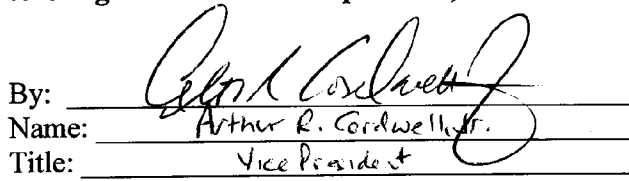 By:
Name: Arthur R. Cordwell, Jr.
Title: Vice President